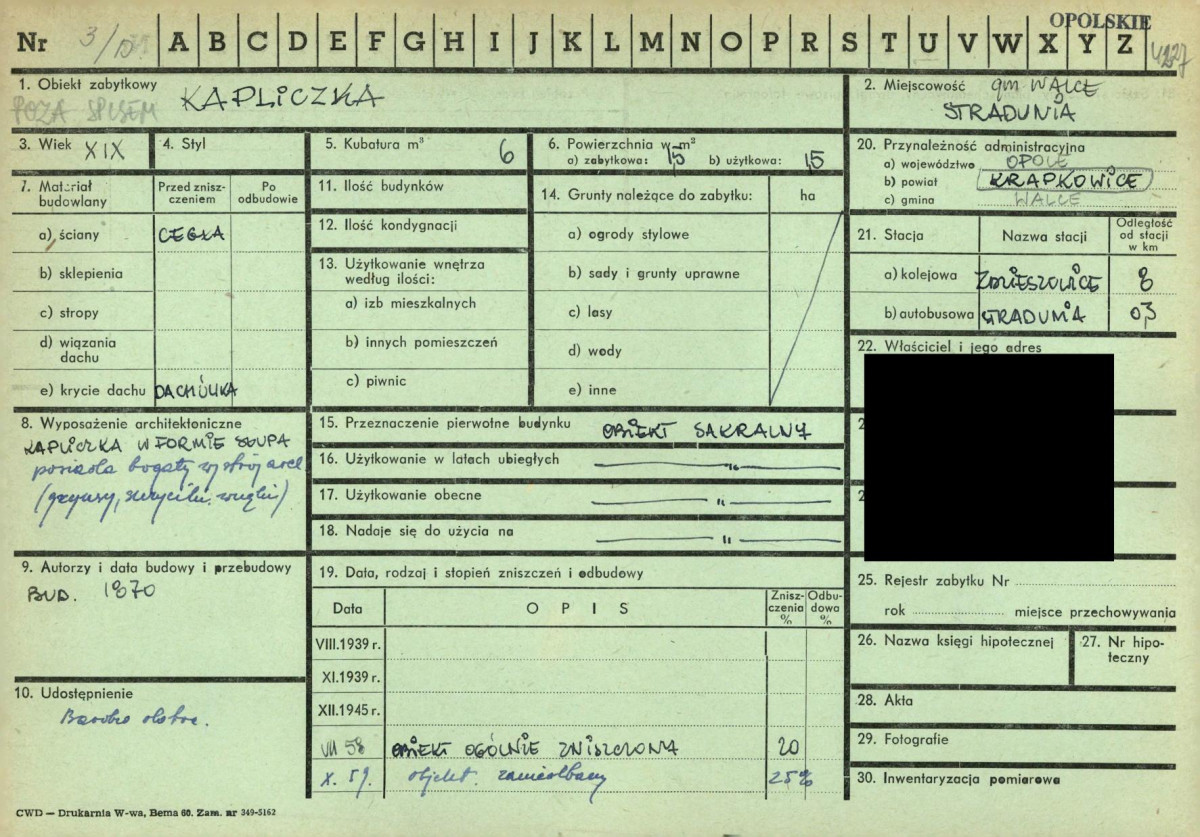 OPOLSKIE
Nr 3/ A B C D E F G H I J K L M N O P R S T U V W X Y Z
1. Obiekt zabytkowy
POZA SPISEM KAPLICZKA
2. Miejscowość gm WALCE
STRADUNIA
3. Wiek XIX
4. Styl
5. Kubatura m³ 6
6. Powierzchnia w m²
a) zabytkowa: 1,5 b) użytkowa: 1,5
20. Przynależność administracyjna
a) województwo OPOLE
b) powiat KRAPKOWICE
c) gmina WALCE
7. Materiał budowlany
Przed zniszczeniem
Po odbudowie
a) ściany CEGŁA
b) sklepienia
c) stropy
d) wiązania dachu
e) krycie dachu DACHÓWKA
11. Ilość budynków
12. Ilość kondygnacji
13. Użytkowanie wnętrza
według ilości:
a) izb mieszkalnych
b) innych pomieszczeń
c) piwnic
14. Grunty należące do zabytku: ha
a) ogrody stylowe
b) sady i grunty uprawne
c) lasy
d) wody
e) inne
21. Stacja
Nazwa stacji
Odległość
od stacji
w km
a) kolejowa ZDZIESZOWICE 8
b) autobusowa STRADUNIA 0,3
22. Właściciel i jego adres
8. Wyposażenie architektoniczne
KAPLICZKA W FORMIE SŁUPA
posiada bogaty wystrój arch
(gzymsy, szczyciki, wnęki)
15. Przeznaczenie pierwotne budynku OBIEKT SAKRALNY
16. Użytkowanie w latach ubiegłych —"—
17. Użytkowanie obecne —"—
18. Nadaje się do użycia na —"—
9. Autorzy i data budowy i przebudowy
BUD. 1870
10. Udostępnienie
Bardzo dobre.
19. Data, rodzaj i stopień zniszczeń i odbudowy
Data
OPIS
Zniszczenia %
Odbudowa %
VIII.1939 r.
XI.1939 r.
XII.1945 r.
VII 58 OBIEKT OGÓLNIE ZNISZCZONA 20
X. 59. objekt zaniedbany 25%
25. Rejestr zabytku Nr
rok miejsce przechowywania
26. Nazwa księgi hipotecznej
27. Nr hipoteczny
28. Akta
29. Fotografie
30. Inwentaryzacja pomiarowa
CWD — Drukarnia W-wa, Bema 60. Zam. nr 349-5162